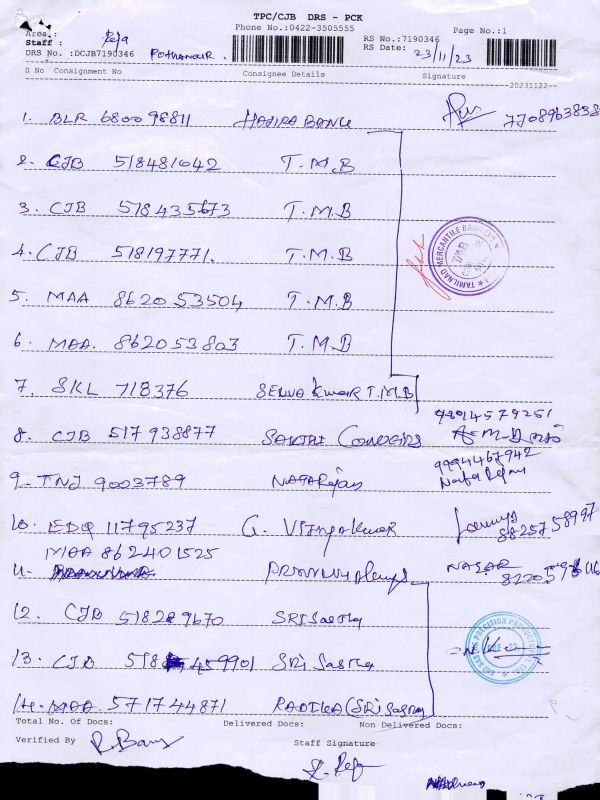 TPC/CJB DRS - PCK
Phone No.:0422-3505555
Page No.:1
Area.: Reja
Staff :
RS No.:7190346
DRS No.:DCJB7190346 POTHANOUR.
RS Date: 23/11/23
S No Consignment No Consignee Details Signature
20231122--
1. BLR 680098811 HAJIRA BANU 7708963838
2. CJB 518481642 T.M.B
3. CJB 518435673 T.M.B
4. CJB 518197771. T.M.B
TAMILNAD MERCANTILE BANK LTD
5. MAA 862053504 T.M.B
6. MAA. 862053803 T.M.B
7. SKL 718376 SELVA kumar T.M.B
8. CJB 517938877 SAKTHI 9894579251
9. TNJ 9003789 NATARajan 9994467942
10. EDQ 11795237 G. VIJayakumar 8825758997
MAA 862401525
11. NASAR
12. CJB 518289670 SRISastha
13. CJB 518 459901 SRI Sastha
14. MAA 571744871 RADIKA (SRI Sastha
Total No. Of Docs: Delivered Docs: Non Delivered Docs:
Verified By R. Banu
Staff Signature
R. Reja